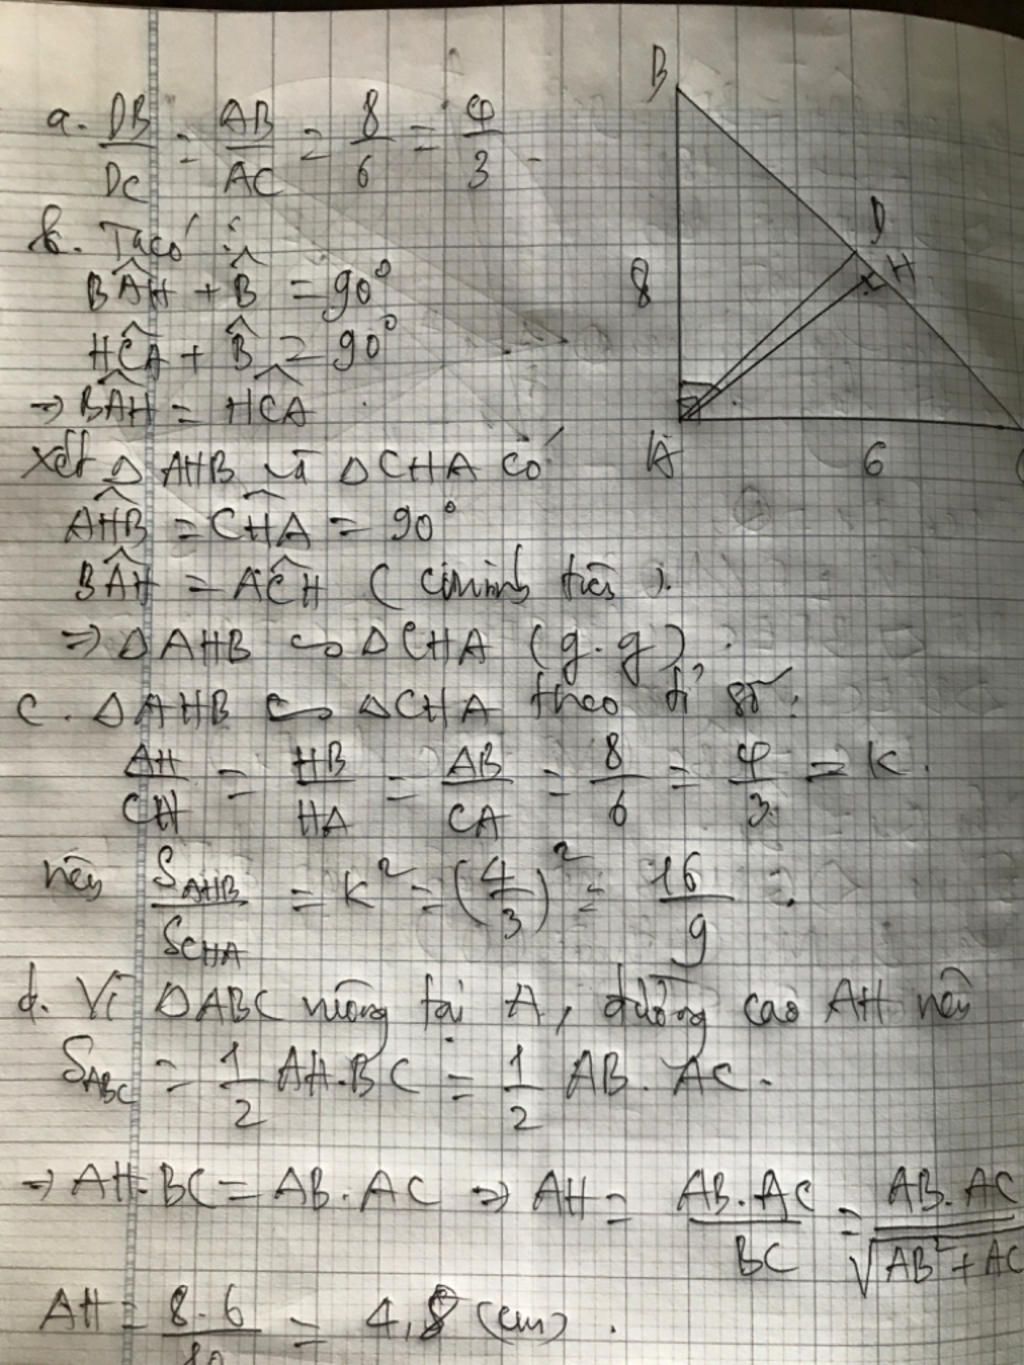 a. DB/DC = AB/AC = 8/6 = 4/3.
b. Ta có:
BÂH + B̂ = 90°
HĈA + B̂ = 90°
⇒ BÂH = HĈA.
Xét △AHB và △CHA có
AĤB = CĤA = 90°
BÂH = AĈH (c/minh trên).
⇒ △AHB ∽ △CHA (g.g).
c. △AHB ∽ △CHA theo tỉ số:
AH/CH = HB/HA = AB/CA = 8/6 = 4/3 = K.
nên S_AHB/S_CHA = K² = (4/3)² = 16/9.
d. Vì △ABC vuông tại A, đường cao AH nên
S_ABC = 1/2 AH.BC = 1/2 AB.AC.
⇒ AH.BC = AB.AC ⇒ AH = AB.AC/BC = AB.AC/√AB²+AC
AH = 8.6/10 = 4,8 (cm).
B
D
H
8
A
6
C